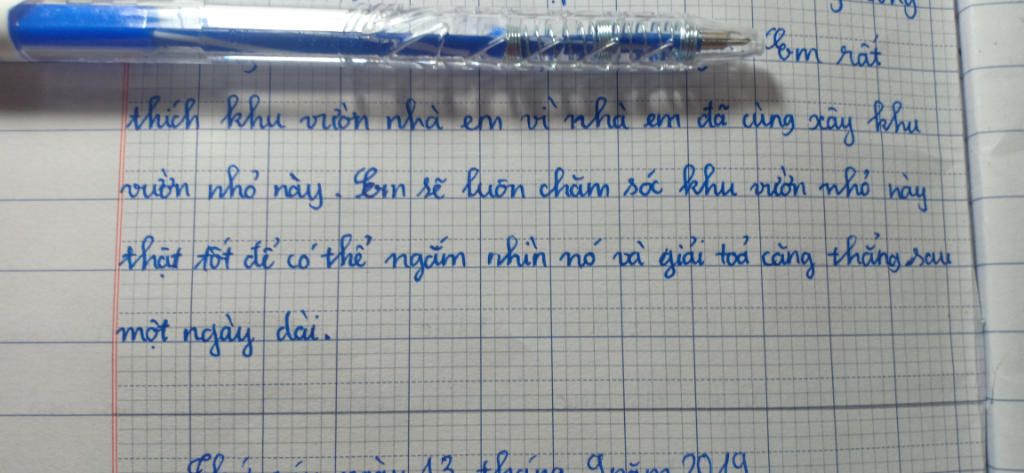 Em rất
thích khu vườn nhà em vì nhà em đã cùng xây khu
vườn nhỏ này. Em sẽ luôn chăm sóc khu vườn nhỏ này
thật tốt để có thể ngắm nhìn nó và giải toả căng thẳng sau
một ngày dài.
ngày 13 tháng 9 năm 2019